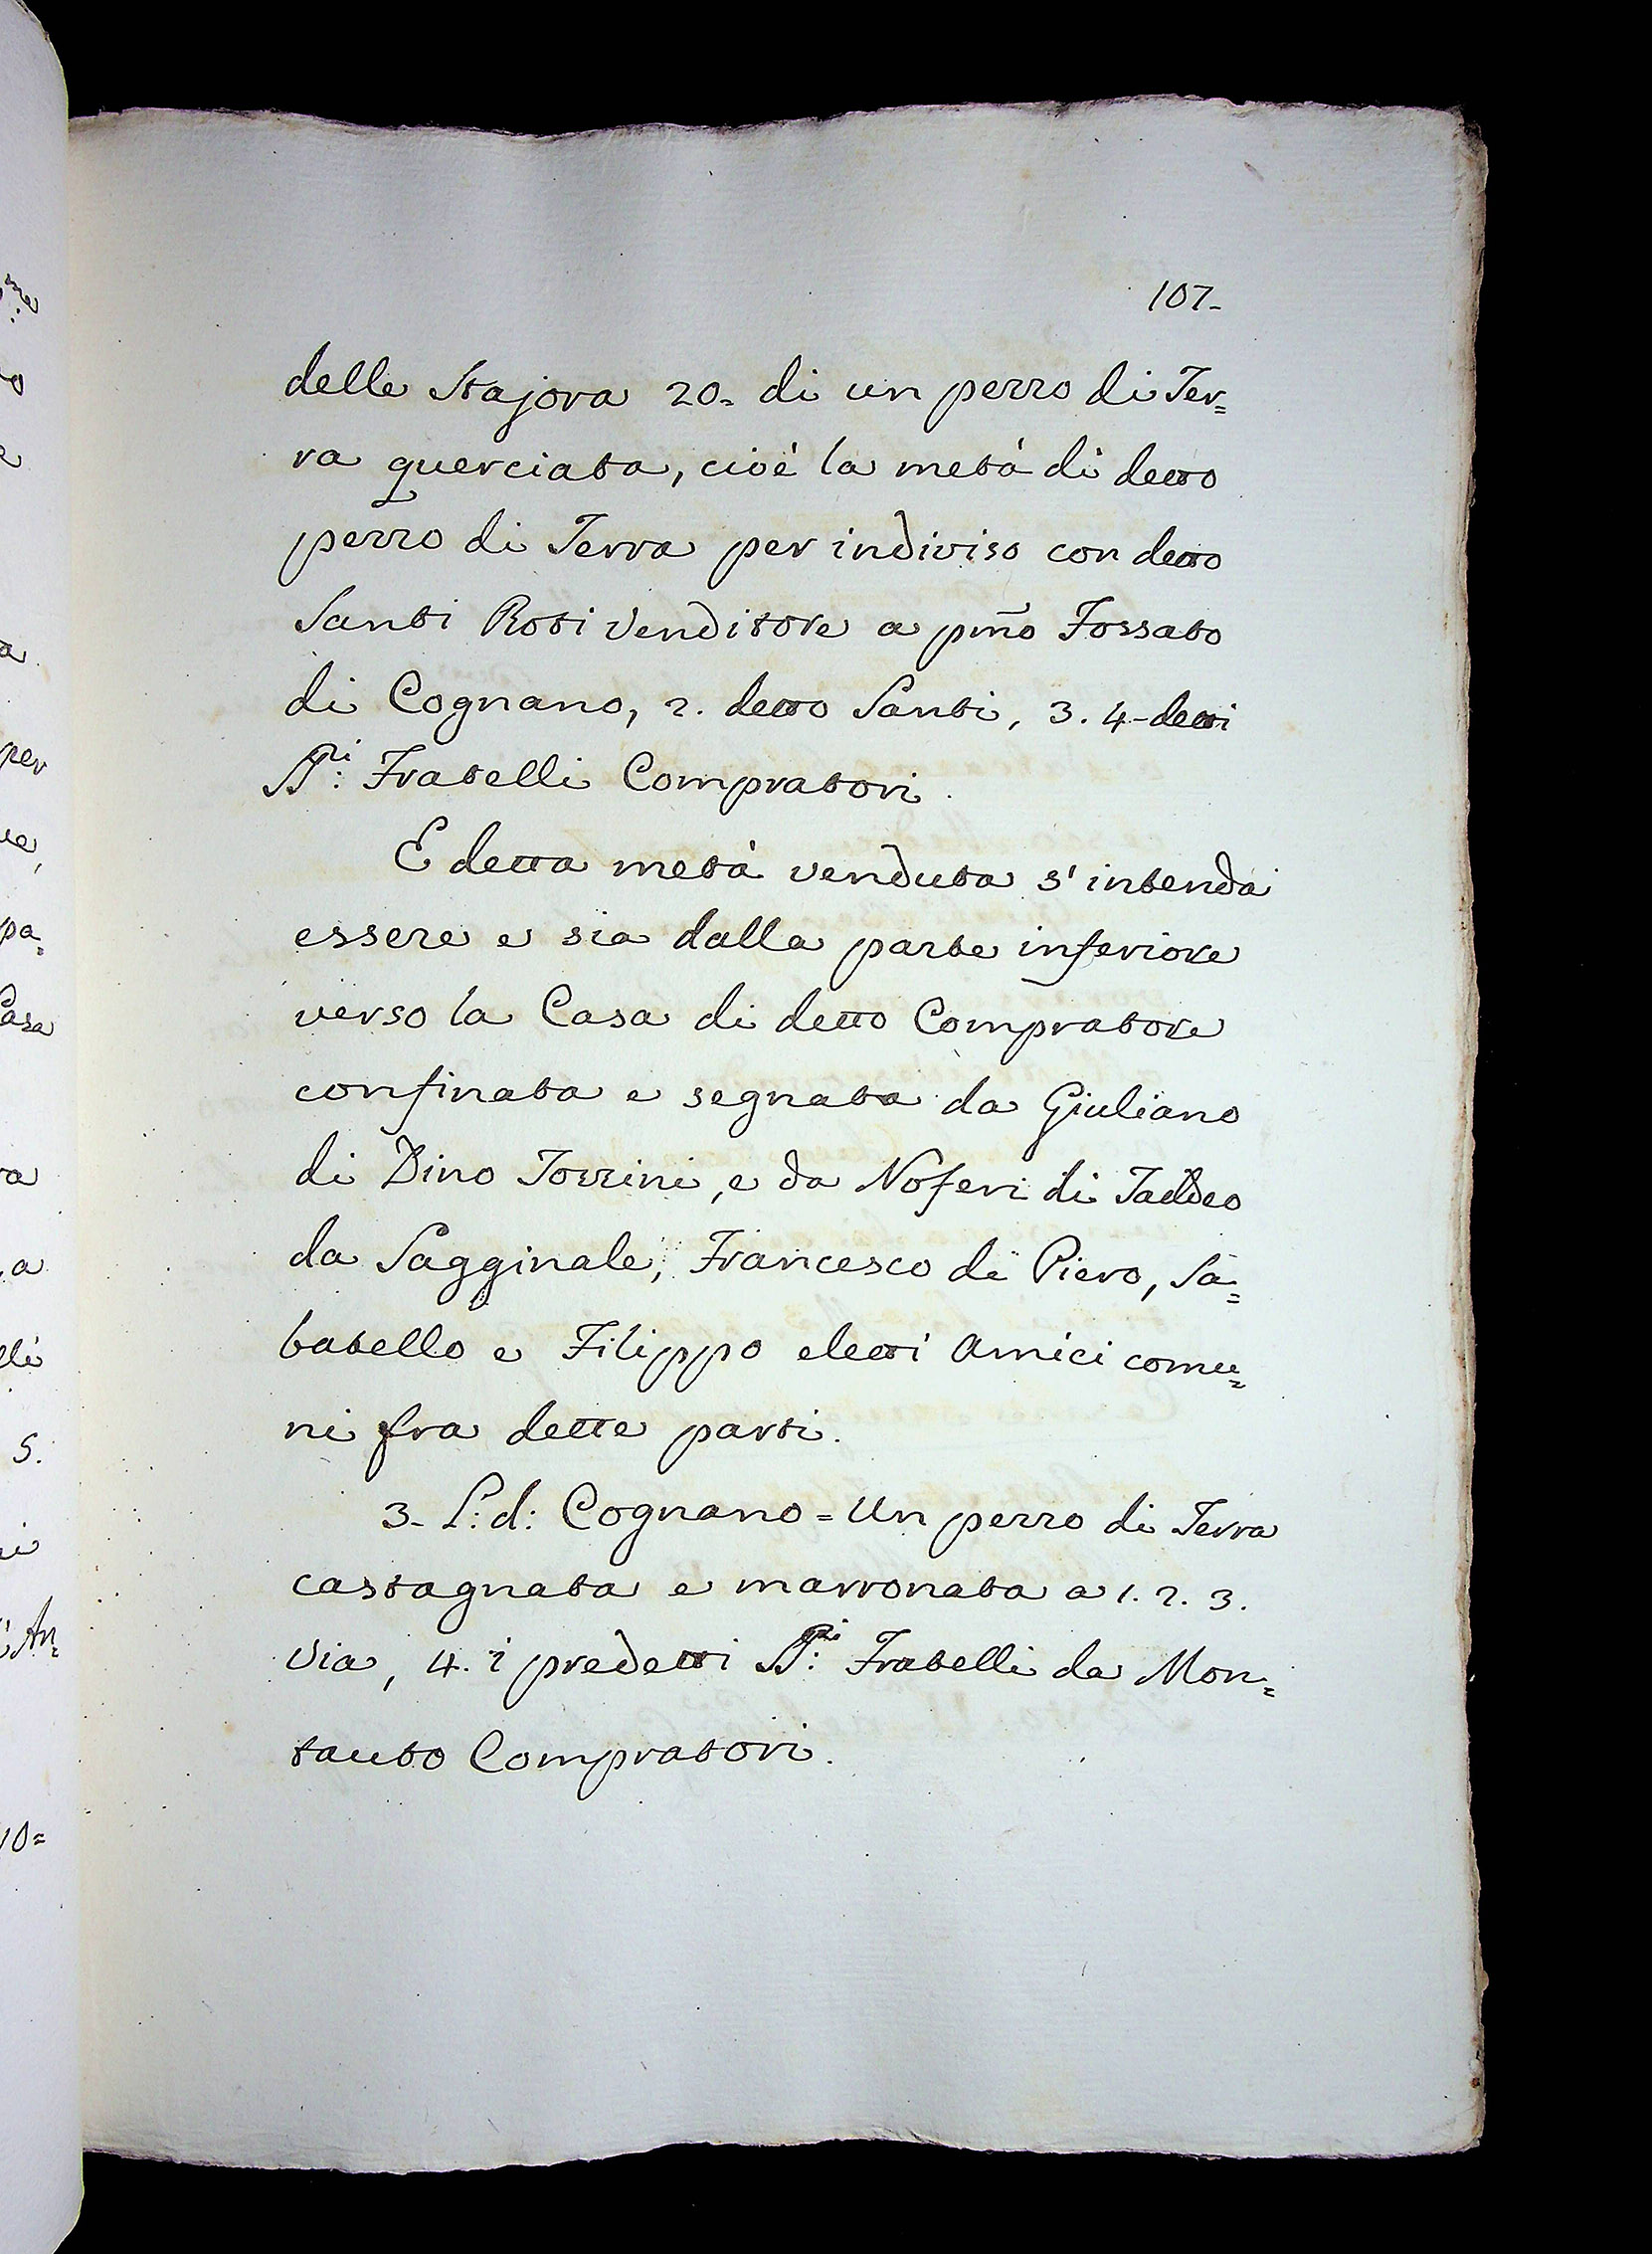 107-
delle Stajora 20= di un pezzo di Ter=
ra querciata, cioè la metà di detto
pezzo di Terra per indiviso con detto
Santi Roti Venditore a pm̃o Fossato
di Cognano, 2. detto Santi, 3. 4- detti
Fratelli Compratori.
E detta metà venduta s'intenda
essere e sia dalla parte inferiore
verso la Casa di detto Compratore
confinata e segnata da Giuliano
di Dino Torrini, e da Noferi di Taddeo
da Sagginale, Francesco di Piero, Sa=
batello e Filippo eletti Amici comu=
ni fra dette parti.
3- L: d: Cognano = Un pezzo di Terra
castagnata e marronata a 1. 2. 3.
Via, 4. i predetti Fratelli da Mon=
tauto Compratori.